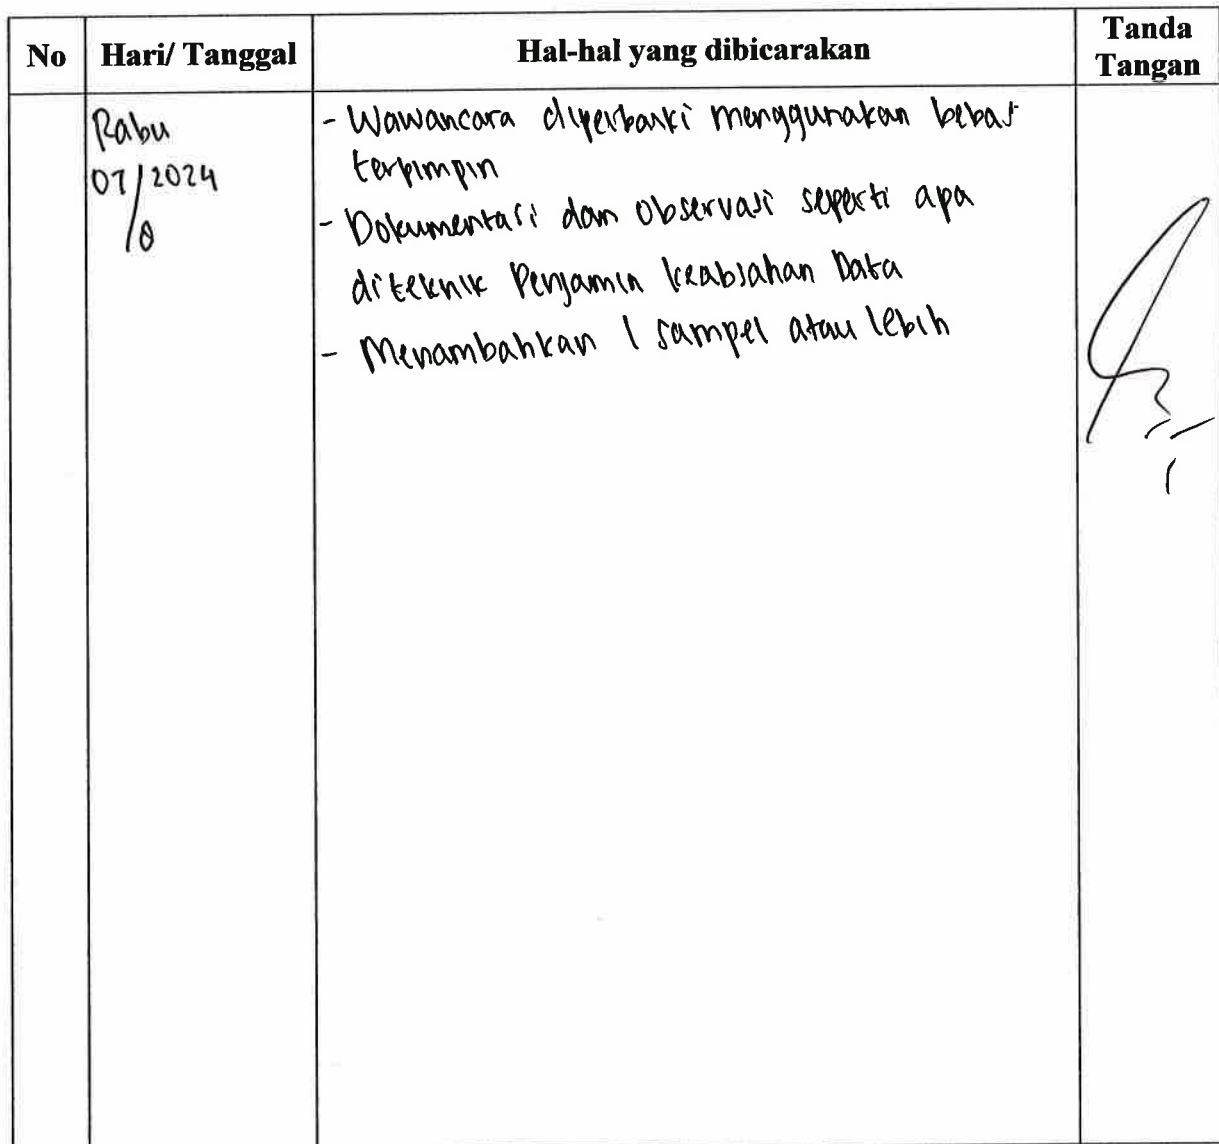 No Hari/ Tanggal Hal-hal yang dibicarakan Tanda Tangan
Rabu
07/8/2024
- Wawancara diperbaiki menggunakan bebas
terpimpin
- Dokumentasi dan Observasi seperti apa
diteknik Penjamin keabsahan Data
- Menambahkan 1 sampel atau lebih